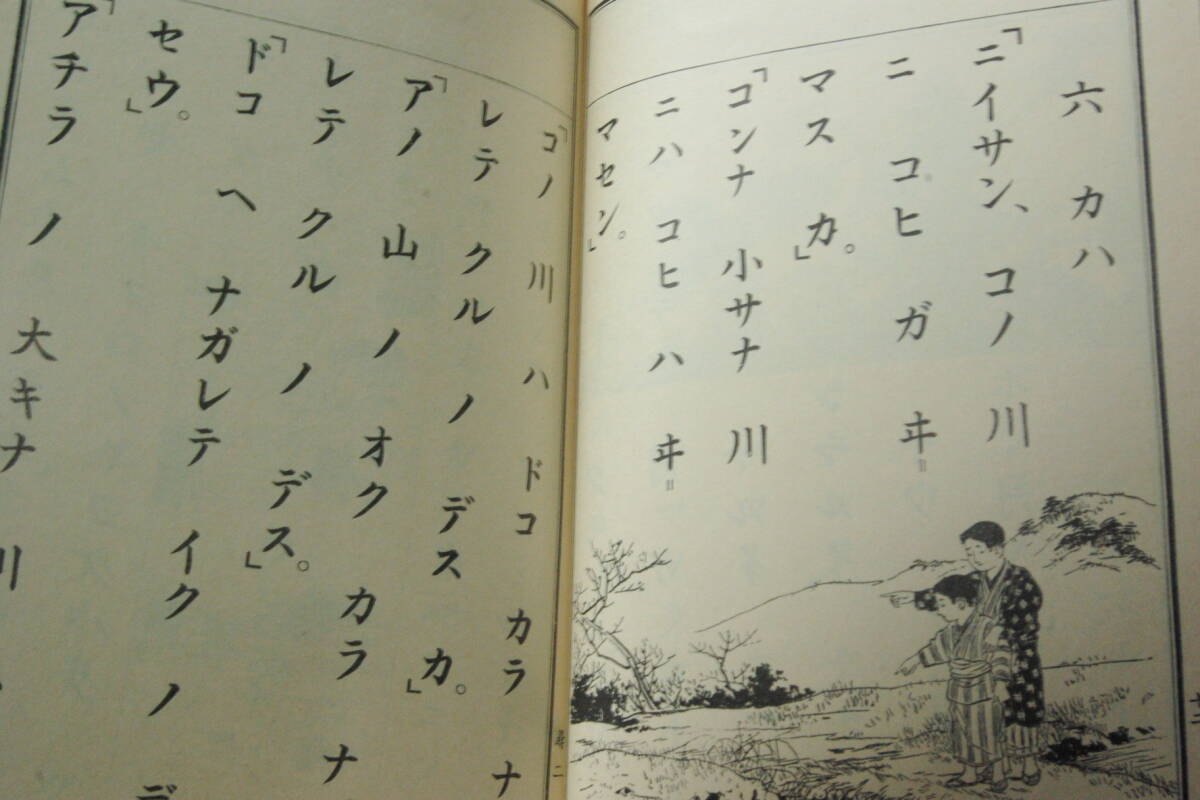 六 カハ
「ニイサン、コノ 川
ニ コヒ ガ ヰ=
マス カ。」
「コンナ 小サナ 川
ニハ コヒ ハ ヰ=
マセン。」
「コノ 川 ハ ドコ カラ ナ
レテ クル ノ デス カ。」
「アノ 山 ノ オク カラ ナ
レテ クル ノ デス。」
「ドコ ヘ ナガレテ イク ノ デ
セウ。」
「アチラ ノ 大キナ 川
尋二